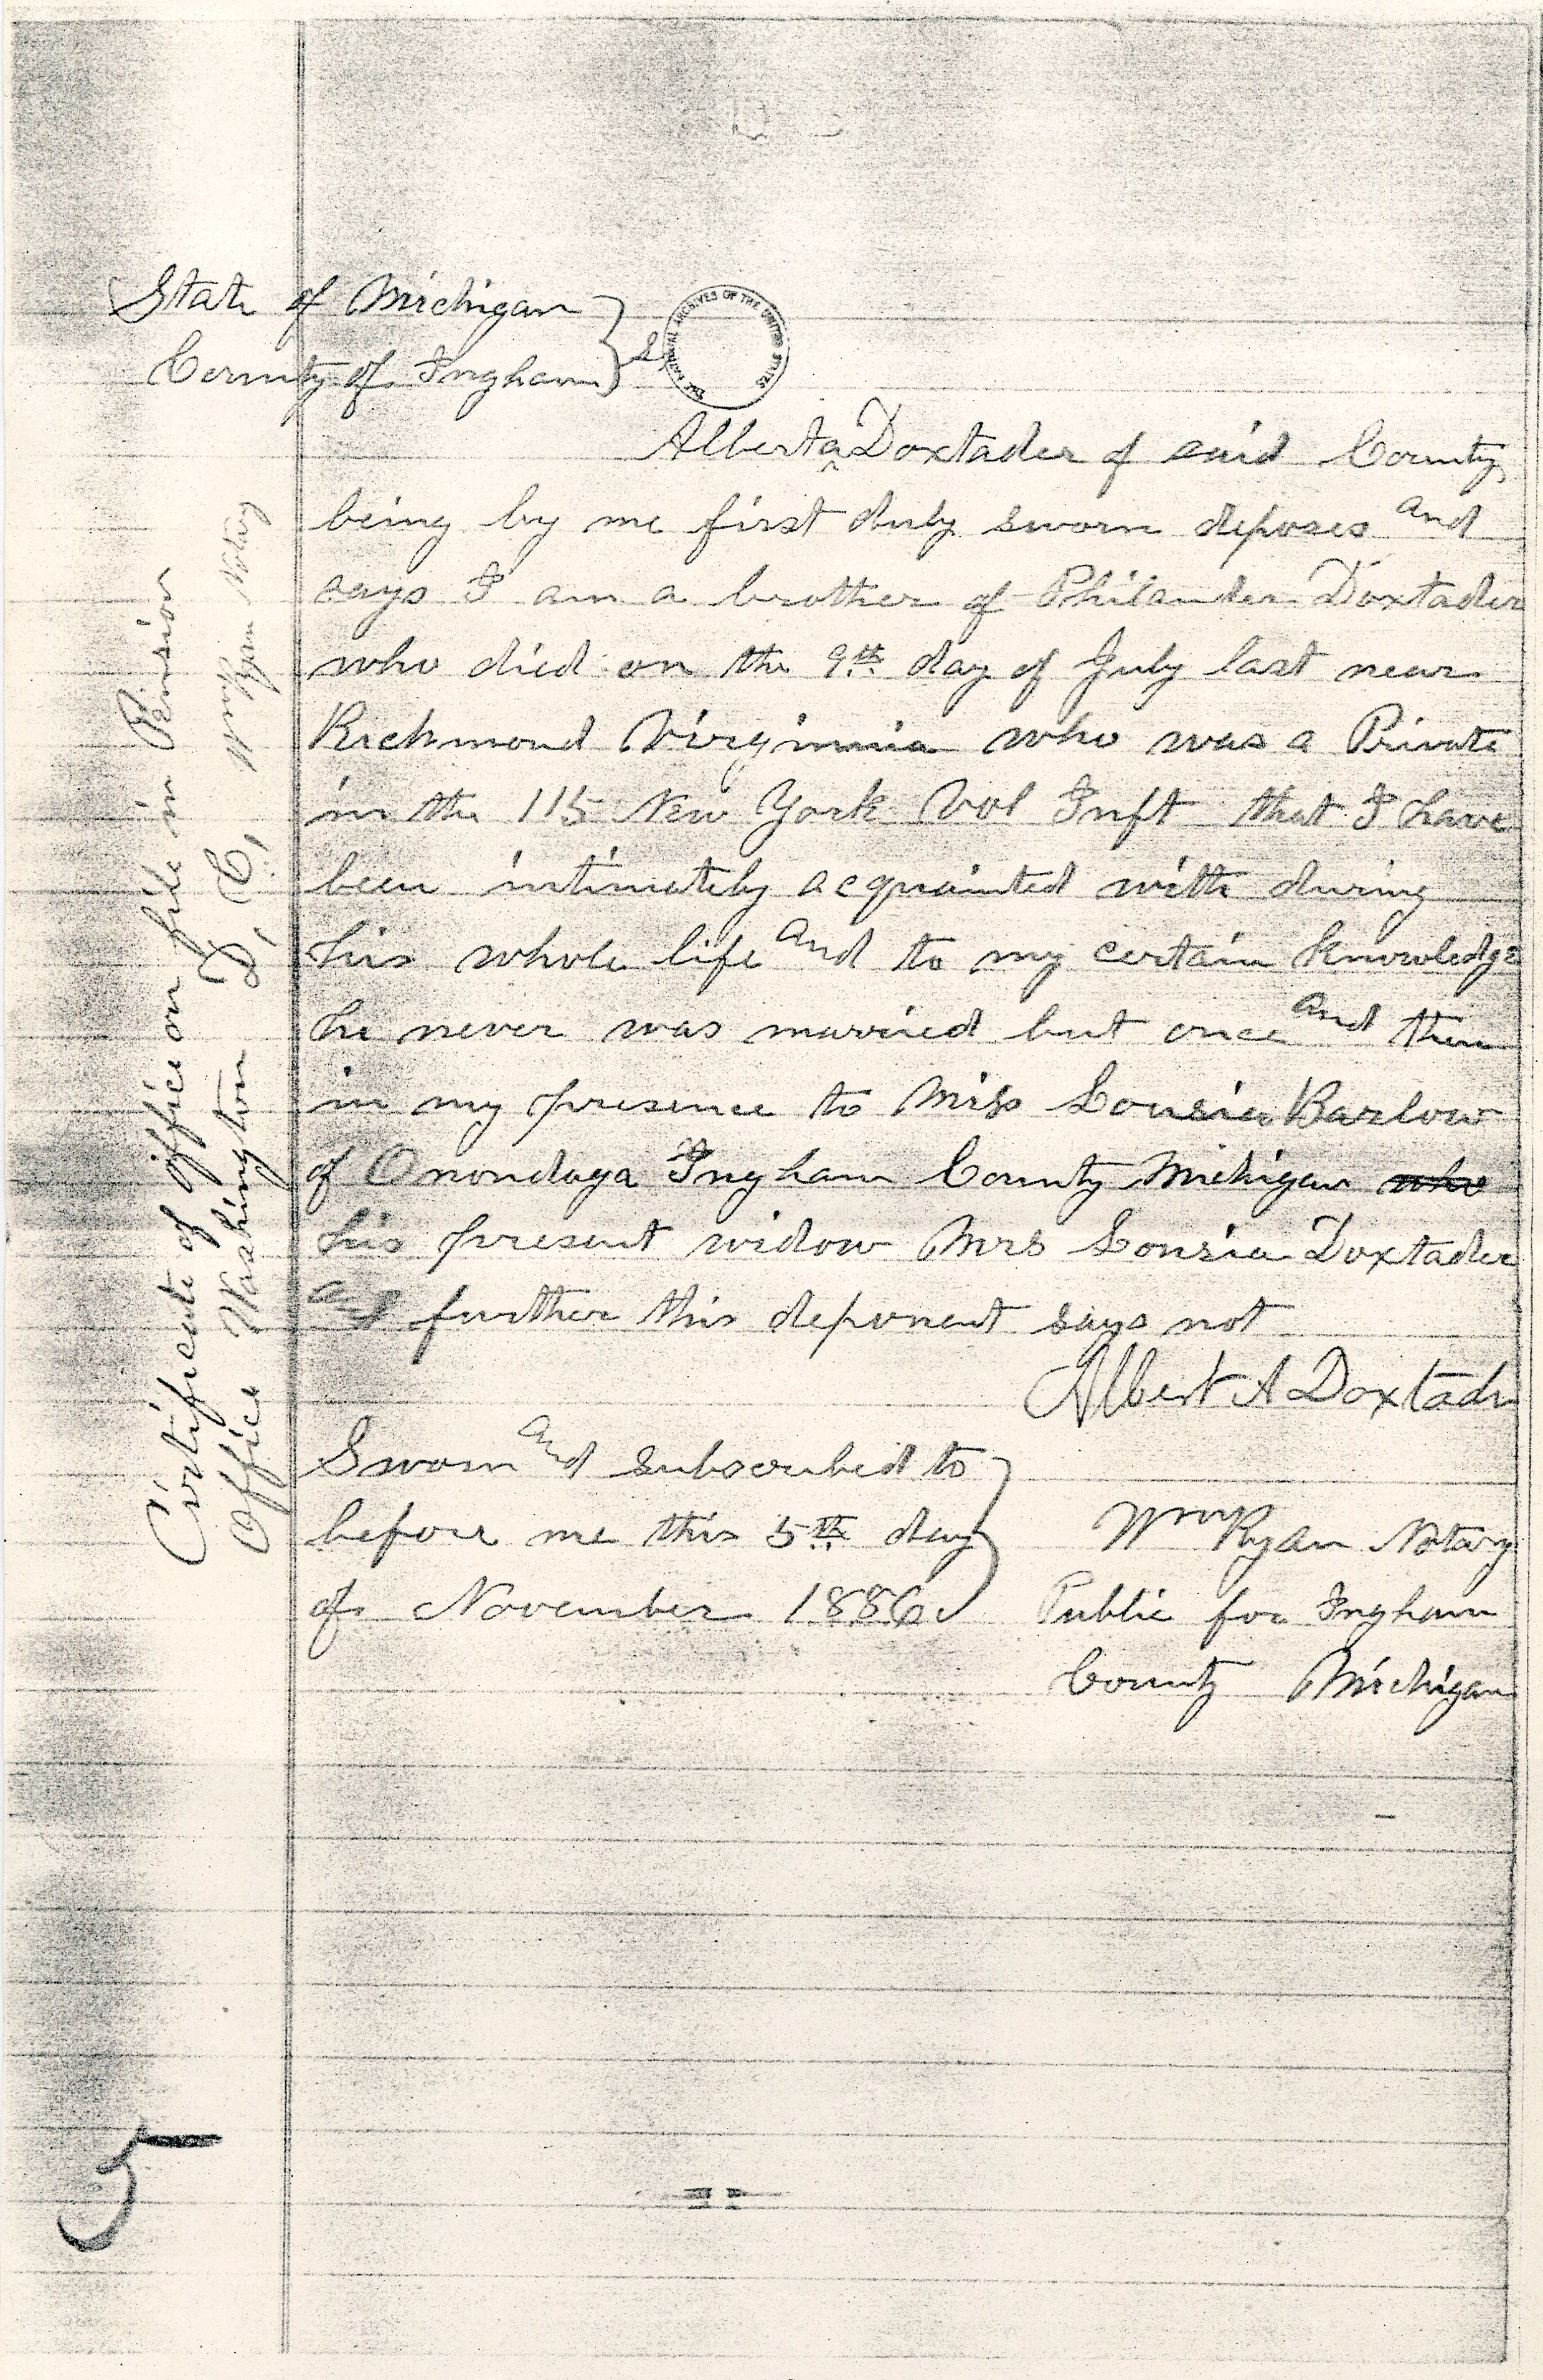 State of Michigan
County of Ingham } SS
THE NATIONAL ARCHIVES OF THE UNITED STATES
Albert A Doxtader of said County
being by me first duly sworn deposes and
says I am a brother of Philander Doxtader
who died on the 9th day of July last near
Richmond Virginnia who was a Private
in the 115 New York Vol Inft that I have
been intimately acquainted with during
his whole life and to my certain knowledge
he never was married but once and then
in my presence to Miss Lousia Barlow
of Onondaga Ingham County Michigan who
his present widow Mrs Lousia Doxtader
and further this deponent says not
Albert A Doxtadr
Sworn and subscribed to
before me this 5th day
of November 1886
Wm Ryan Notary
Public for Ingham
County Michigan
Certificate of office on file in Pension
Office Washington D, C, Wm Ryan Notary
5